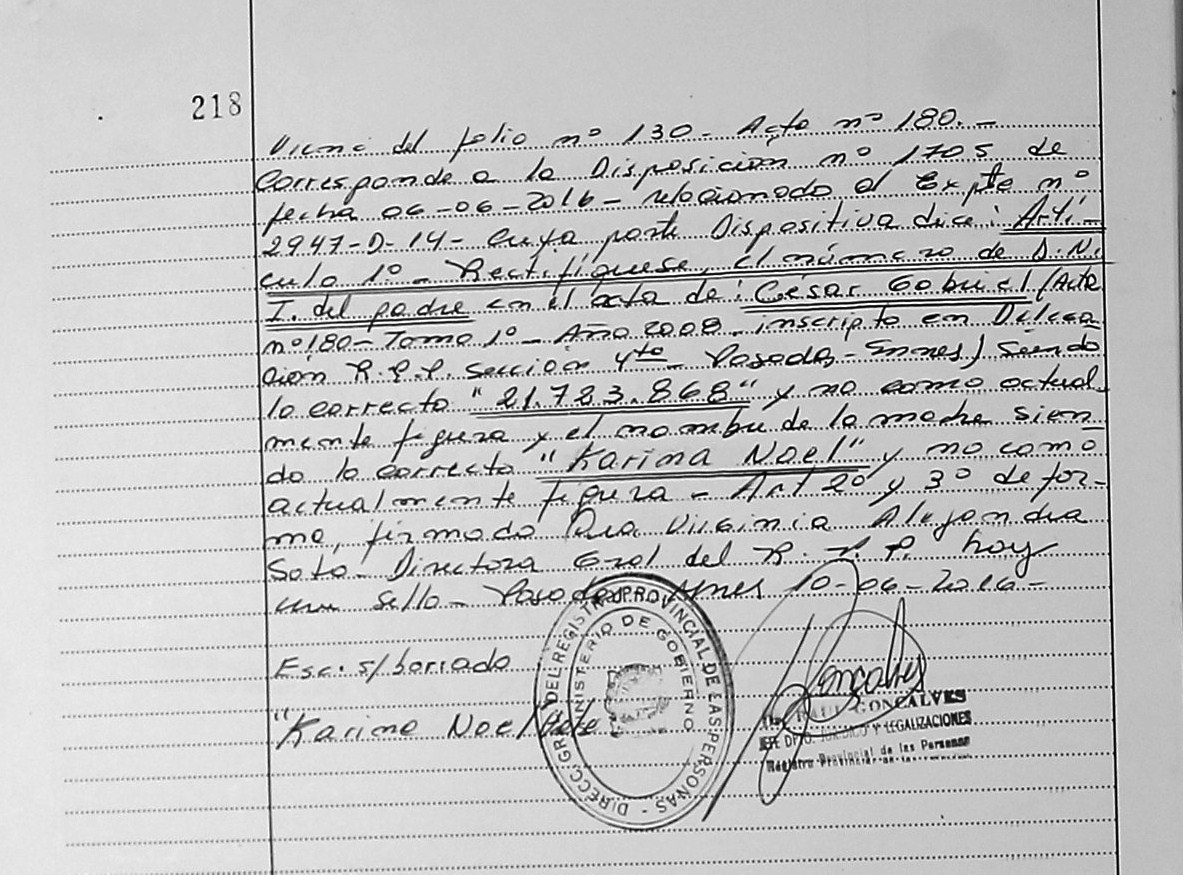 218
Viene del folio nº 130 - Acta nº 180.-
Corresponde a la Disposición nº 1705 de
fecha 06-06-2016 - relacionado al Expte nº
2947-D-14- Cuya parte Dispositiva dice: Artí-
culo 1º - Rectifíquese, el número de D.N.
I. del padre en el acta de: César Gabriel (Acta
nº 180 - Tomo 1º - Año 2008 - inscripto en Delega
ción R.P.P. Sección 4ta - Posadas - Mnes) Siendo
lo correcto "21.723.868" y no como actual
mente figura y el nombre de la madre sien
do lo correcto "Karina Noel" y no como
actualmente figura - Art 2º y 3º de for-
ma, firmado Dra Virginia Alejandra
Soto - Directora Gral del R.P.P. hay
un sello - Posadas, Mnes 10-06-2016-
Esc: s/borrado
"Karina Noel
DIRECC. GRAL DEL REGISTRO PROVINCIAL DE LAS PERSONAS -
MINISTERIO DE GOBIERNO
Gonçalves
GONCALVES
JEFE DPTO. JURIDICO Y LEGALIZACIONES
Registro Provincial de las Personas